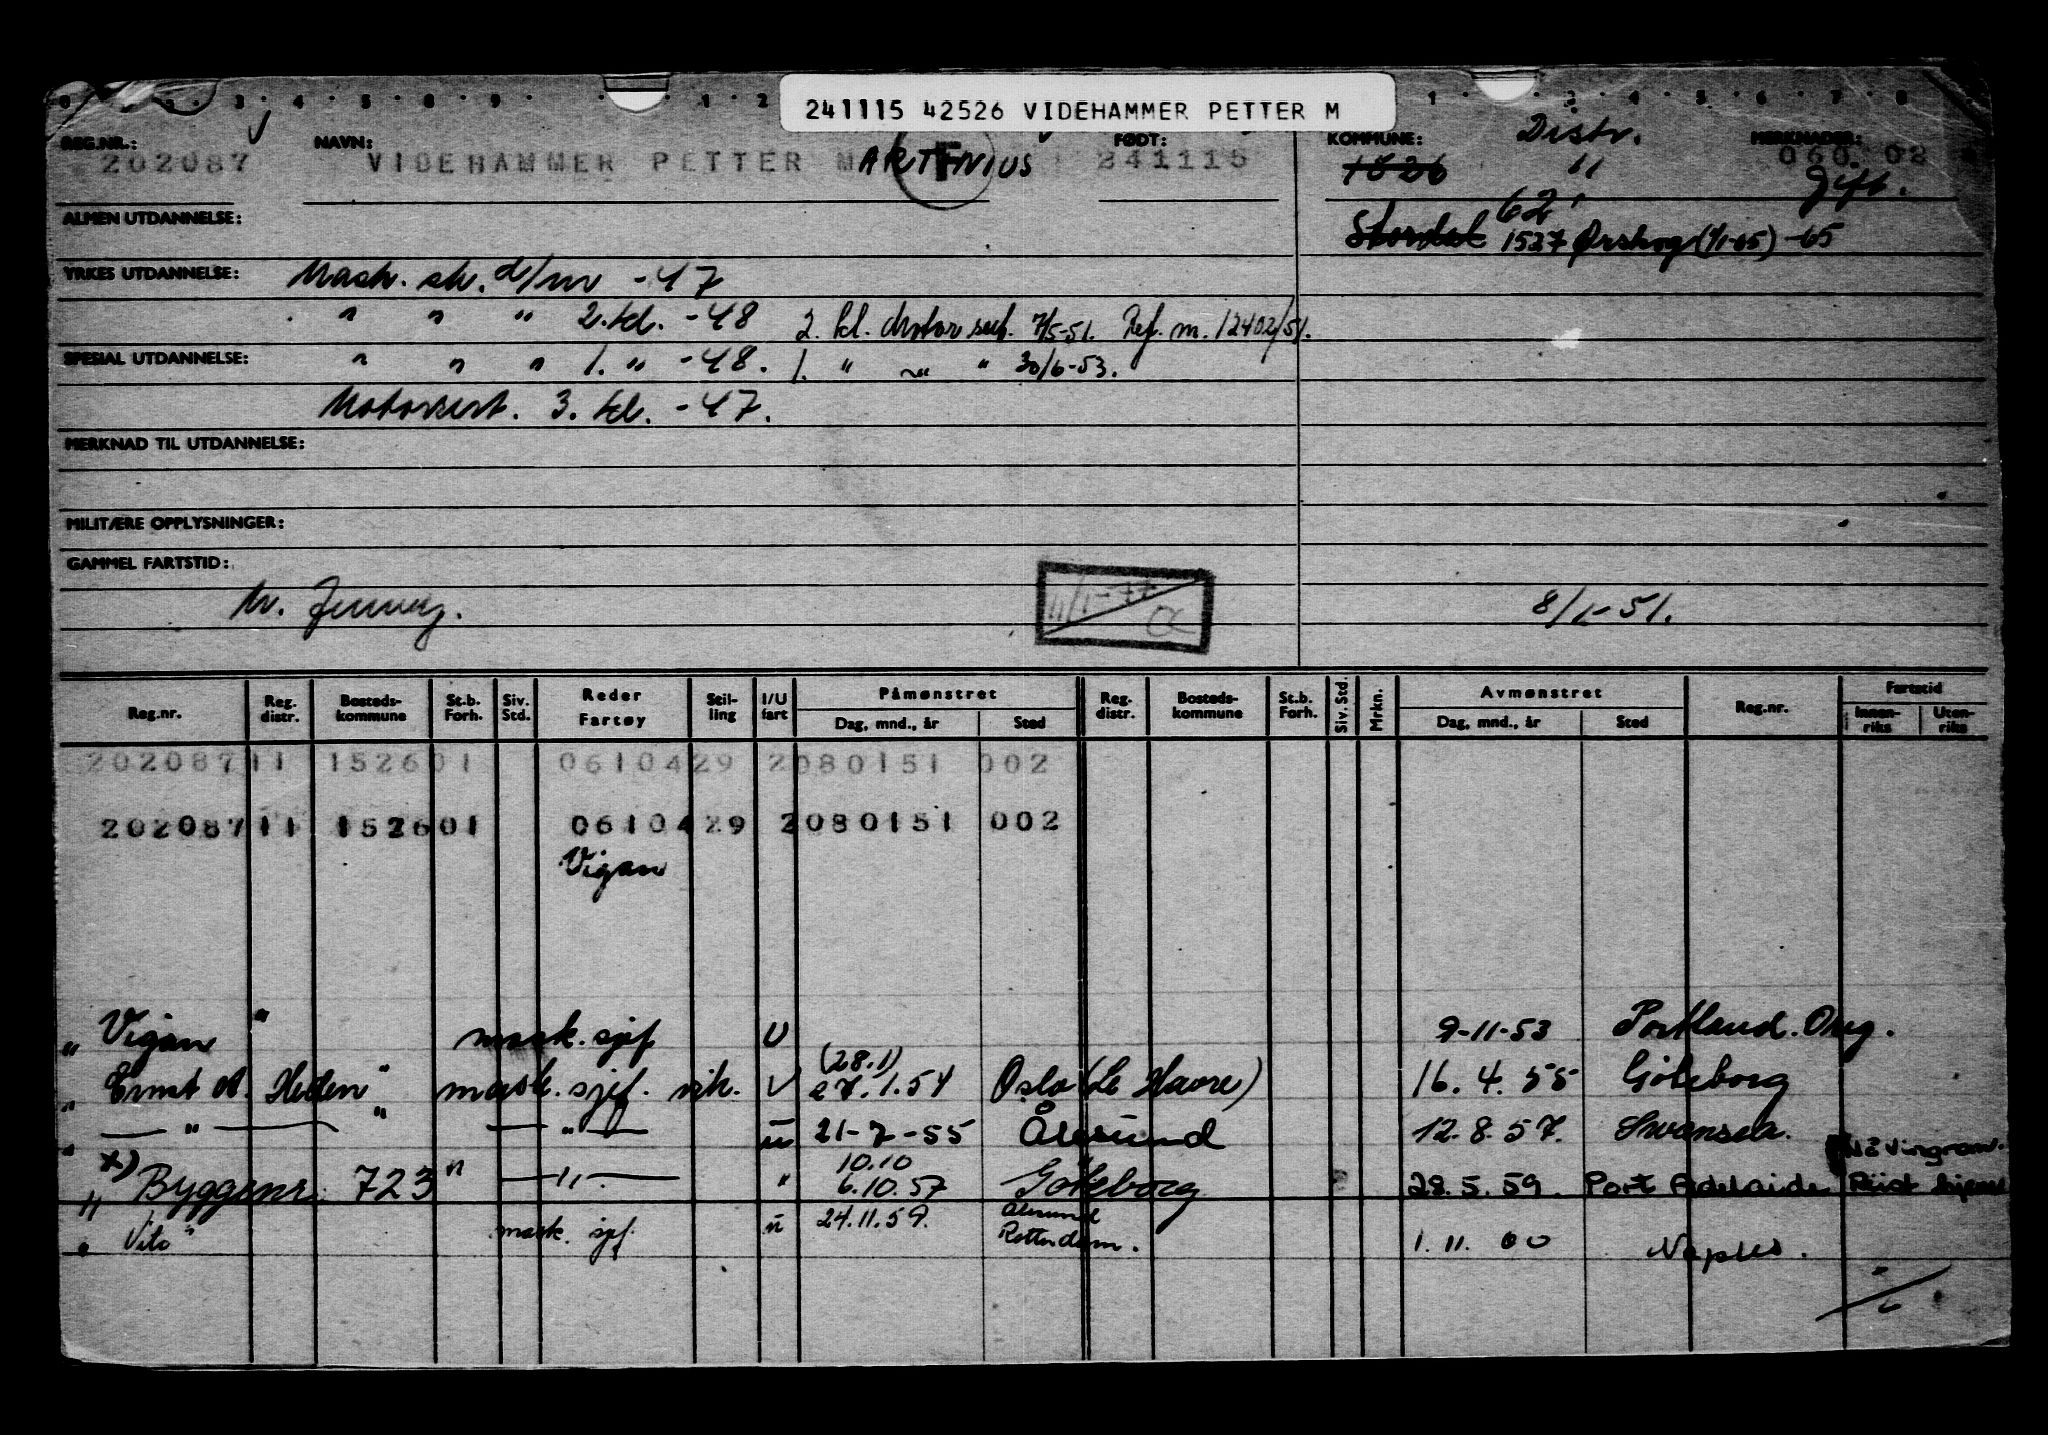 241115 42526 VIDEHAMMER PETTER M
REG.NR.: NAVN: FØDT: KOMMUNE: Distr. MERKNADER:
202087 VIDEHAMMER PETTER MARTINIUS 241115 1526 " 060. 02
Gift.
ALMEN UTDANNELSE: 62
Stordal 1527 Ørskog (1/1-65) -65
YRKES UTDANNELSE: Mask. sk. d/m -47
" " " 2. kl. -48 2. kl. Motor sert. 7/5-51. Ref. m. 12402/51.
SPESIAL UTDANNELSE: " " " 1. " -48. 1. " " " 30/6-53.
Motorsert. 3. kl. -47.
MERKNAD TIL UTDANNELSE:
MILITÆRE OPPLYSNINGER:
GAMMEL FARTSTID:
11/1-77
8/1-51.
Reg.nr. Reg. distr. Bosteds-kommune St.b. Forh. Siv. Std. Reder Fartøy Stil-ling I/U fart Påmønstret Dag, mnd., år Sted Reg. distr. Bosteds-kommune St.b. Forh. Siv. Std. Mrkn. Avmønstret Dag, mnd., år Sted Reg.nr. Fartstid Innen-riks Uten-riks
202087 11 152601 0610429 2080151 002
202087 11 152601 0610429 2080151 002
Vigan
" Vigan " mask. sjef U 9-11-53 Portland. Oreg.
(28.1)
" Ernst A. Heden " mask. sjef. vik. U 27.1.54 Oslo (Le Havre) 16.4.55 Göteborg
" — " — " — " — u 21-7-55 Ålesund 12.8.57. Swansea.
x) 10.10 " Nå Vingrom.
" Byggenr. 723 " — " — " 6.10.57 Göteborg 28.5.59. Port Adelaide Reist hjem
Ålesund
" Vito " mask. sjef. u 24.11.59. Rotterdam. 1.11.60 Naples.